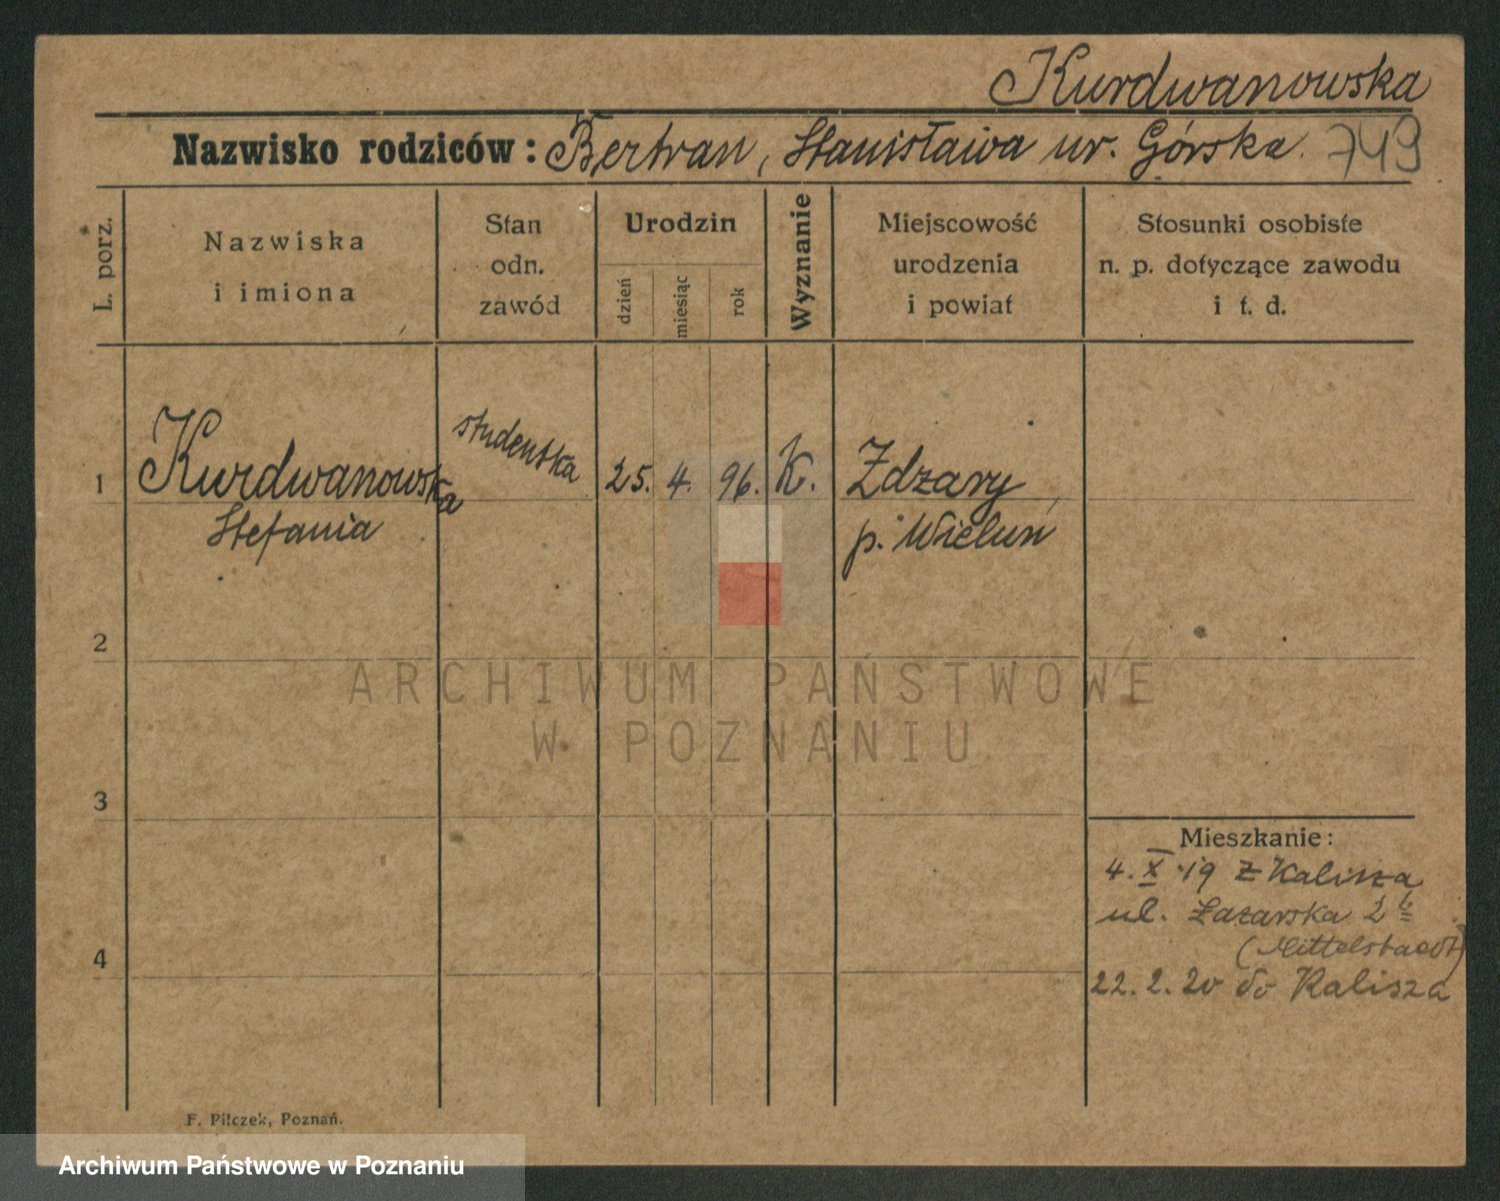 Kurdwanowska
Nazwisko rodziców: Bertran, Stanisława ur. Górska. 749
L. porz.
Nazwiska
i imiona
Stan
odn.
zawód
Urodzin
dzień
miesiąc
rok
Wyznanie
Miejscowość
urodzenia
i powiat
Stosunki osobiste
n. p. dotyczące zawodu
i t. d.
1 Kurdwanowska studentka 25. 4. 96. K. Zdzary
Stefania p. Wieluń
2
ARCHIWUM PAŃSTWOWE
W POZNANIU
3
Mieszkanie:
4. X 19 z Kalisza
ul. Łazarska 2
(Mittelstaedt)
4
22. 2. 20 do Kalisza
F. Pilczek, Poznań.
Archiwum Państwowe w Poznaniu